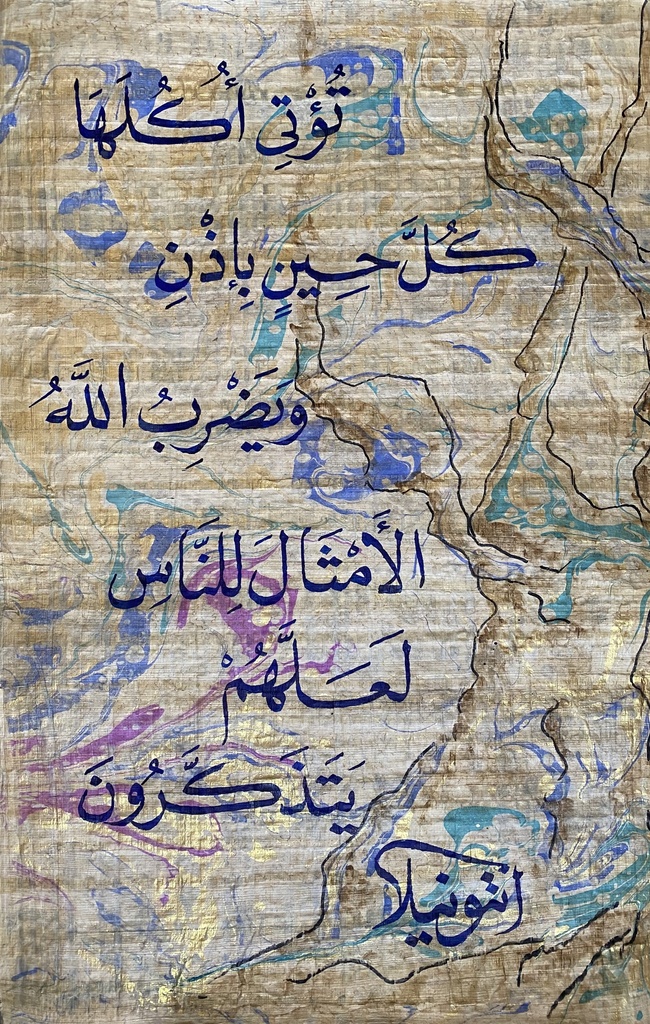 تُؤْتِي أُكُلَهَا
كُلَّ حِينٍ بِإِذْنِ
وَيَضْرِبُ اللَّهُ
الأَمْثَالَ لِلنَّاسِ
لَعَلَّهُمْ
يَتَذَكَّرُونَ
انتونيلا